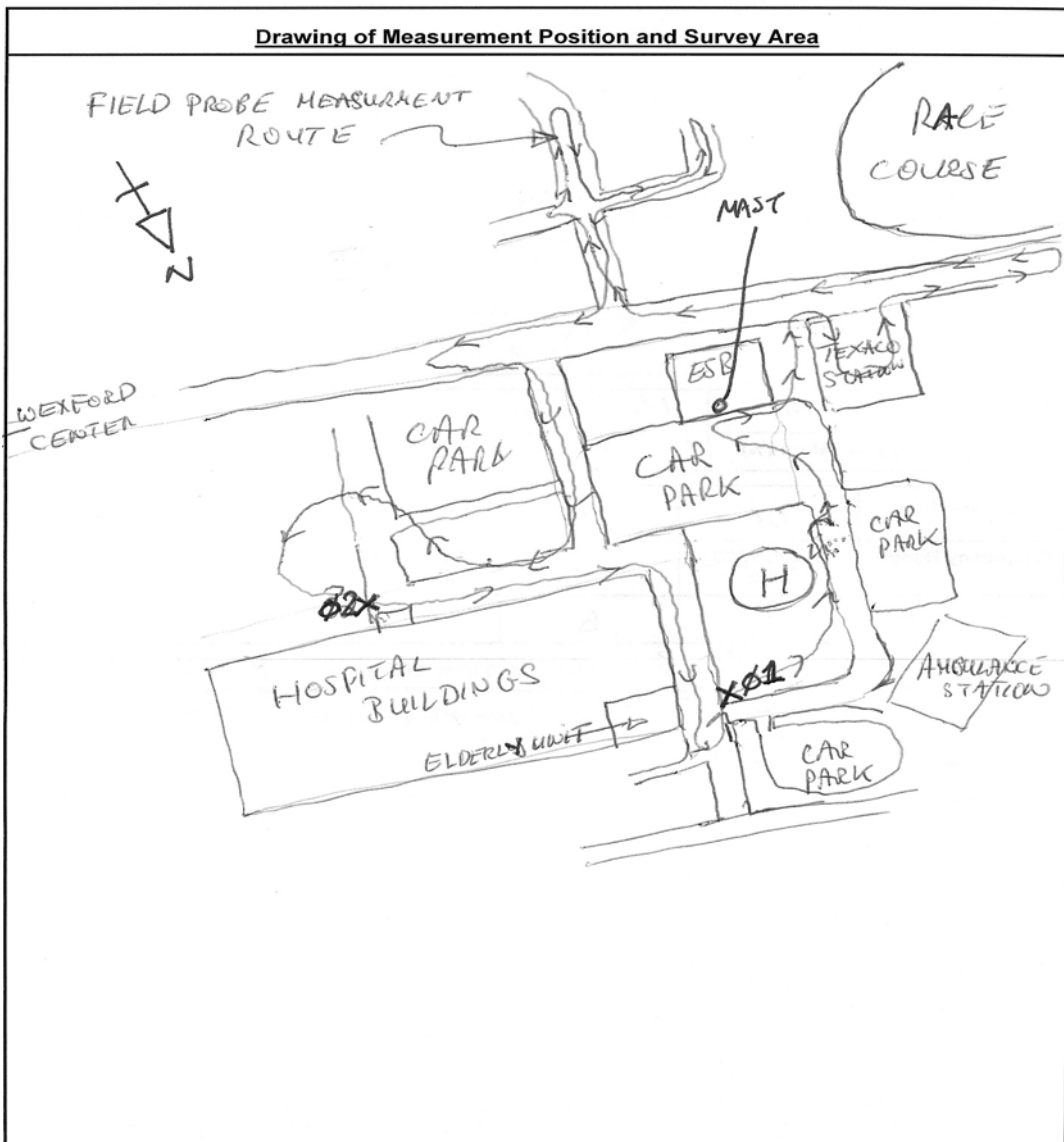 Drawing of Measurement Position and Survey Area
FIELD PROBE MEASURMENT
ROUTE
RACE
COURSE
N
MAST
ESB
TEXACO
STATION
WEXFORD
CENTER
CAR
PARK
CAR
PARK
CAR
PARK
H
Ø2X
XØ1
HOSPITAL
BUILDINGS
AMBULANCE
STATION
ELDERLY UNIT
CAR
PARK